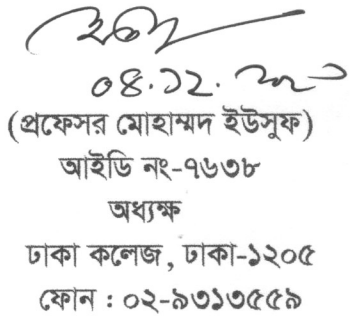 ০৪.১২.
(প্রফেসর মোহাম্মদ ইউসুফ)
আইডি নং-৭৬৩৮
অধ্যক্ষ
ঢাকা কলেজ, ঢাকা-১২০৫
ফোন : ০২-৯৩১৩৫৫৯